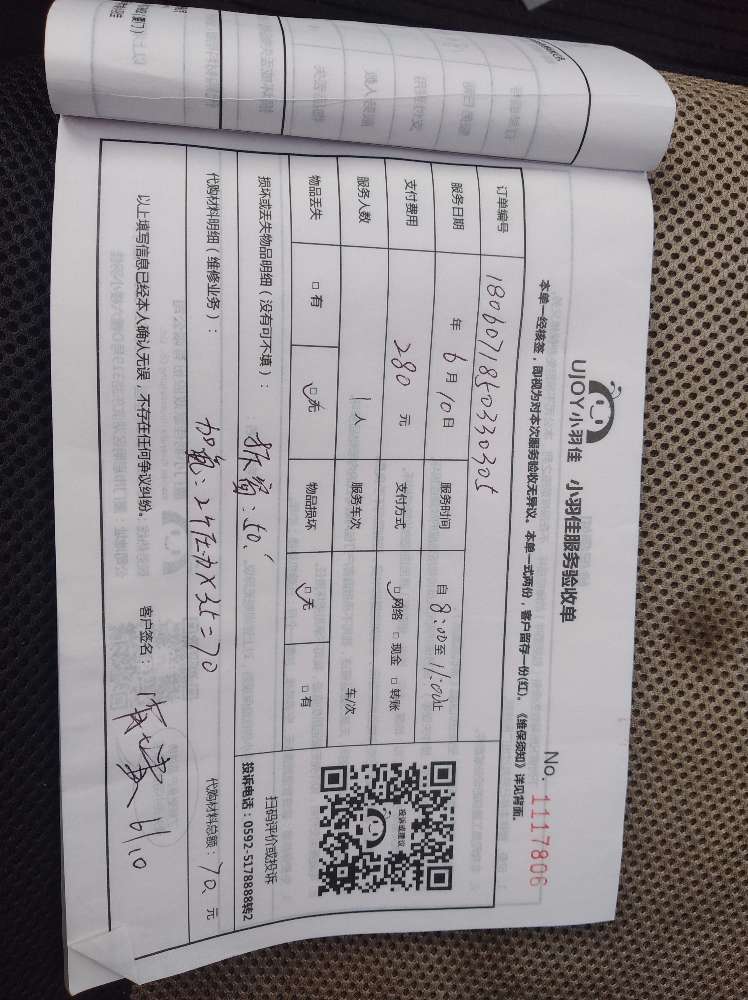 UJOY小羽佳 小羽佳服务验收单
No. 1117806
本单一经核签，即视为对本次服务验收无异议。本单一式两份，客户留存一份(红)。《维保须知》详见背面。
订单编号 180607185033030305
服务日期 年 6月10日 服务时间 自8:00至11:00止
支付费用 280 元 支付方式 □网络 □现金 □转账
服务人数 1人 服务车次 车/次
物品丢失 □有 □无 物品损坏 □无 □有
投诉或建议
扫码评价或投诉
投诉电话：0592-5178888转2
损坏或丢失物品明细（没有可不填）：
50.
代购材料明细（维修业务）：
加氟：
=70
代购材料总额：70 元
以上填写信息已经本人确认无误，不存在任何争议纠纷。 客户签名： 6/10